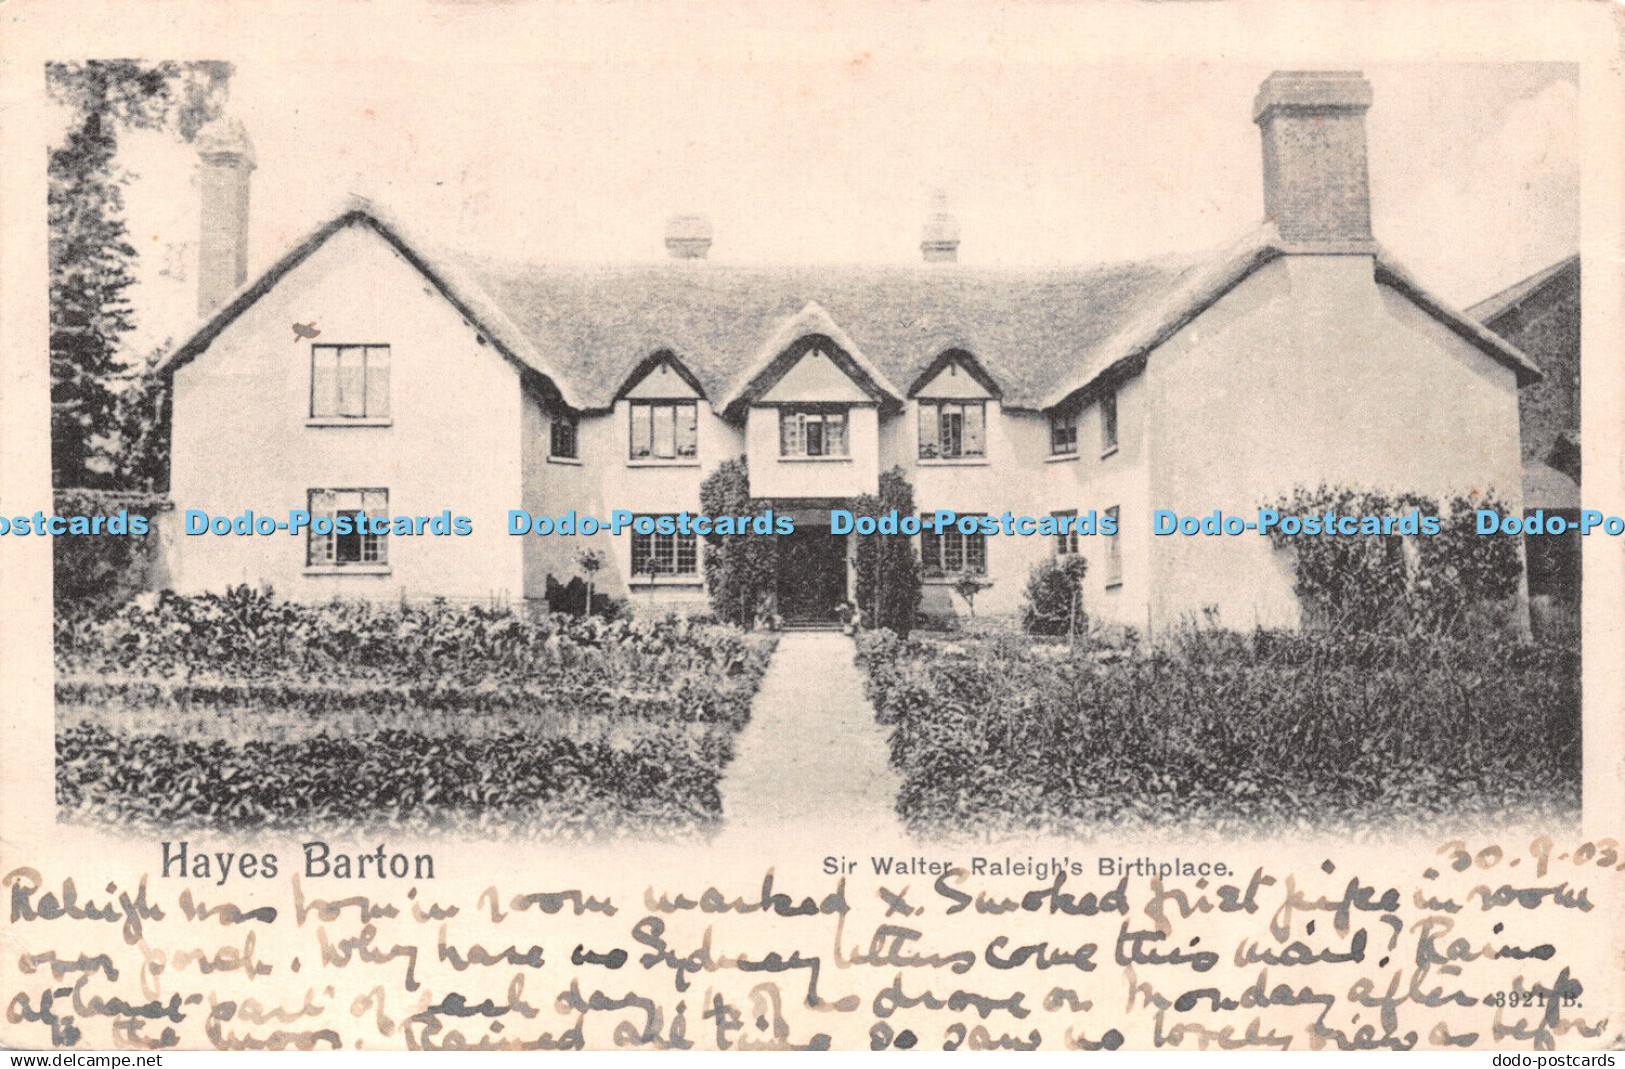 postcards Dodo-Postcards Dodo-Postcards Dodo-Postcards Dodo-Postcards Dodo-Po
Hayes Barton
Sir Walter Raleigh's Birthplace.
30.9.03.
Raleigh was born in room marked x. Smoked first pipe in room
over porch. Why have no Sydney letters come this mail? Rains
at least part of each day. of us drove on Monday after
3921 B.
to the moor. Rained all time so saw no lovely view as before
dodo-postcards.com
dodo-postcards